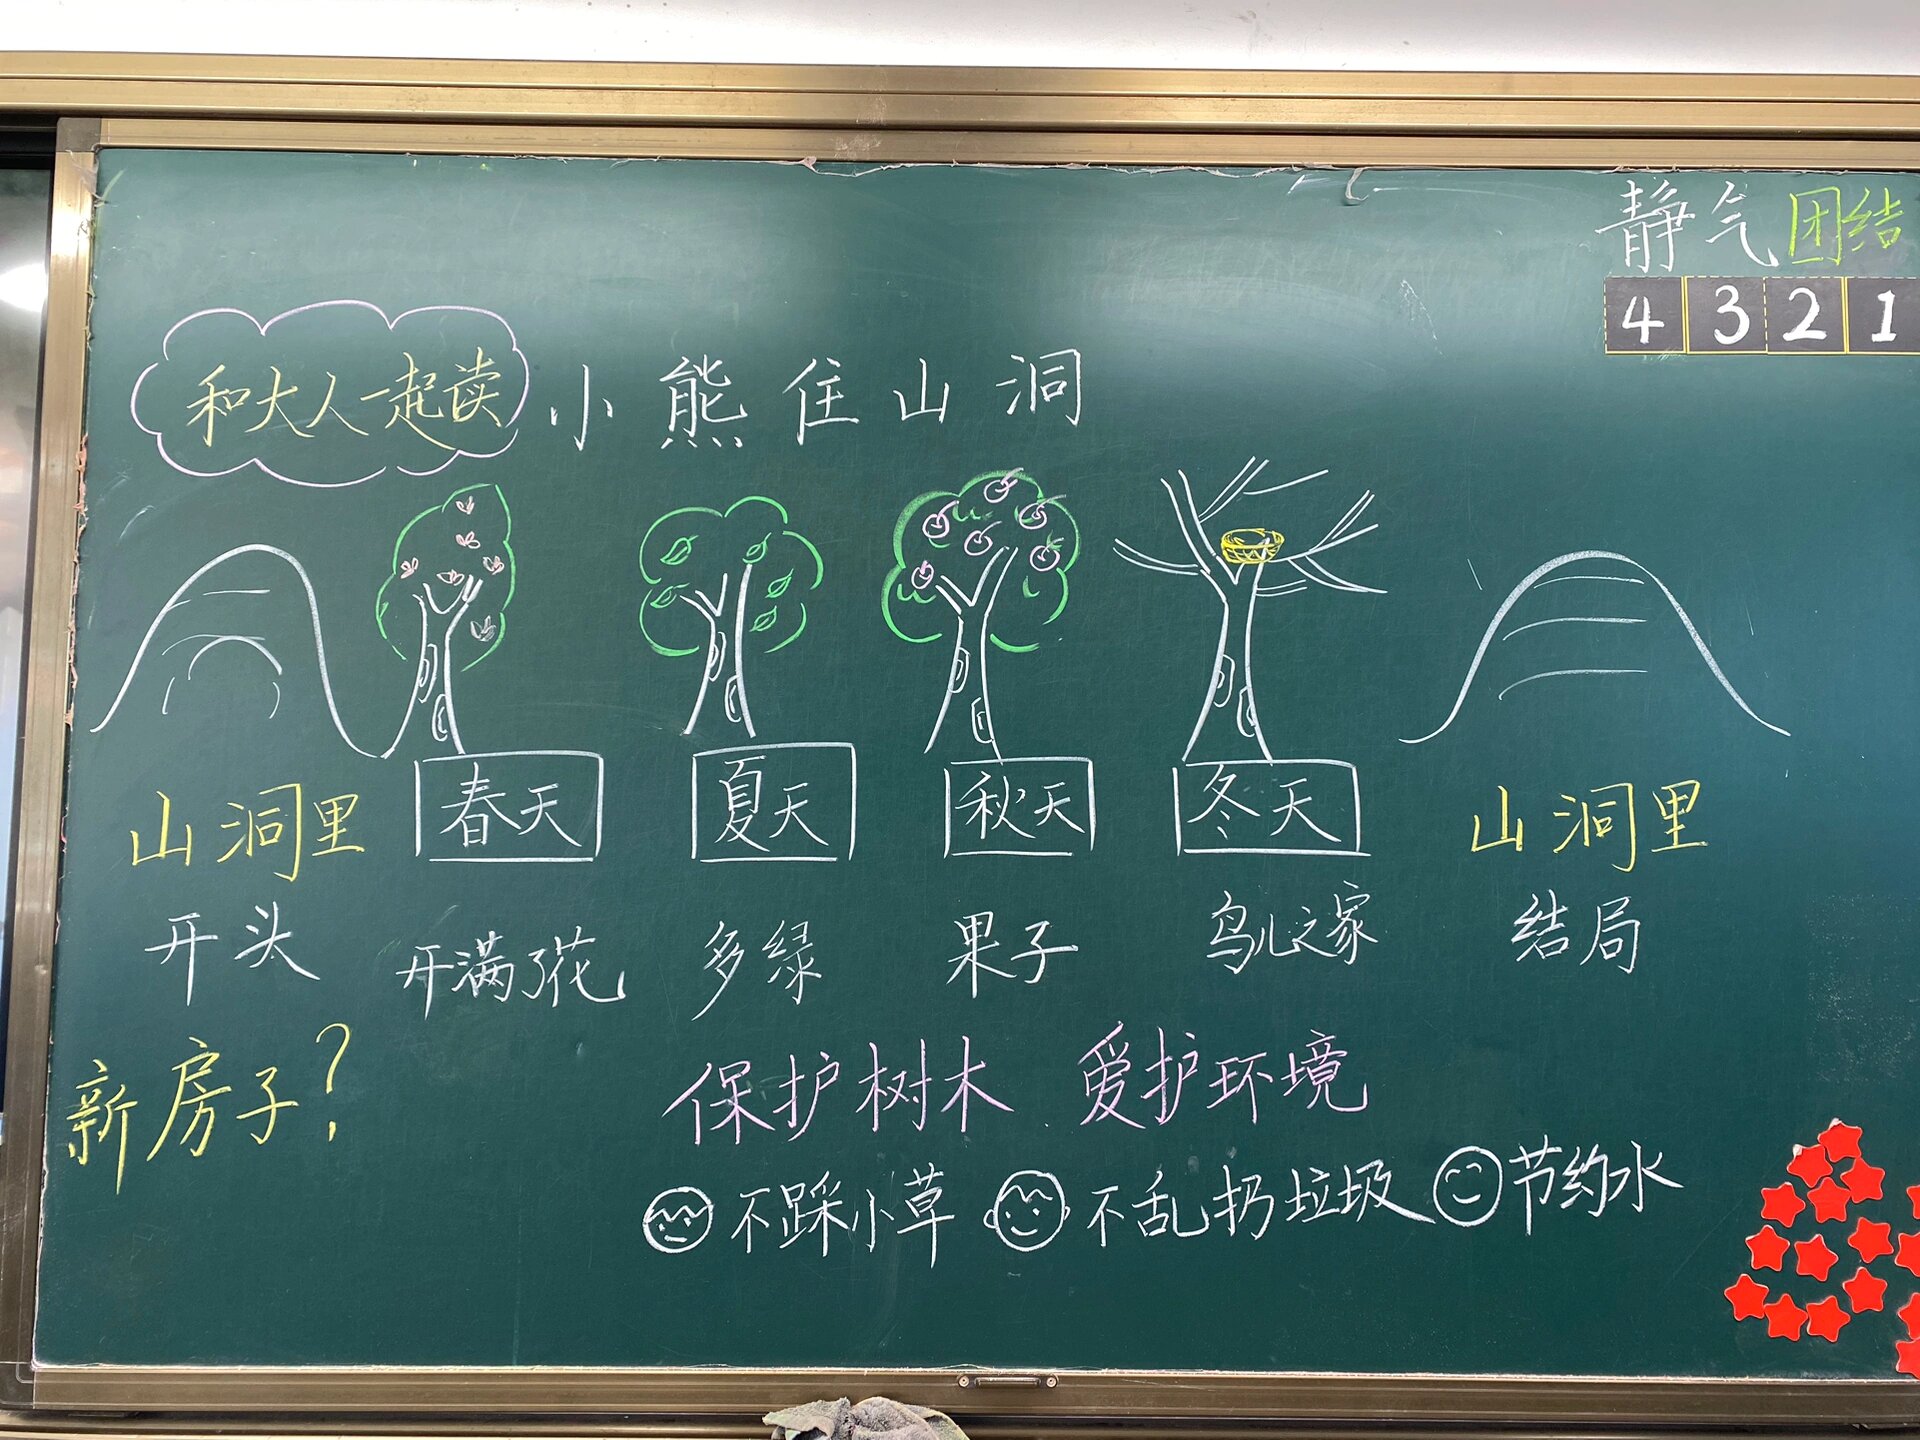 静气 团结
4 3 2 1
和大人一起读 小熊住山洞
山洞里 春天 夏天 秋天 冬天 山洞里
开头 开满了花 多绿 果子 鸟儿之家 结局
新房子? 保护树木 爱护环境
不踩小草 不乱扔垃圾 节约水